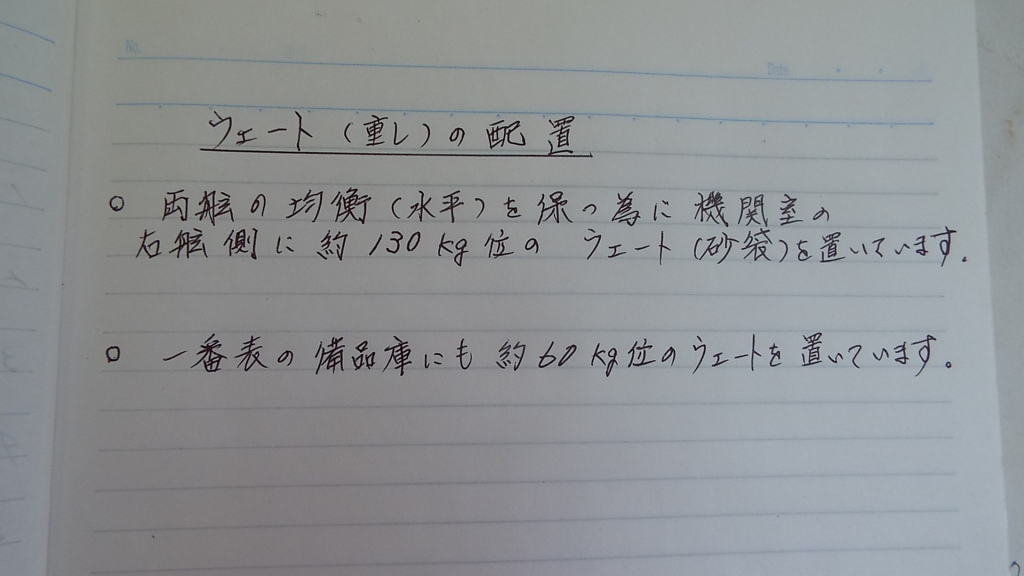 No.
Date
ウェート（重し）の配置
○ 両舷の均衡（水平）を保つ為に機関室の
右舷側に約130kg位のウェート（砂袋）を置いています。
○ 一番表の備品庫にも約60kg位のウェートを置いています。